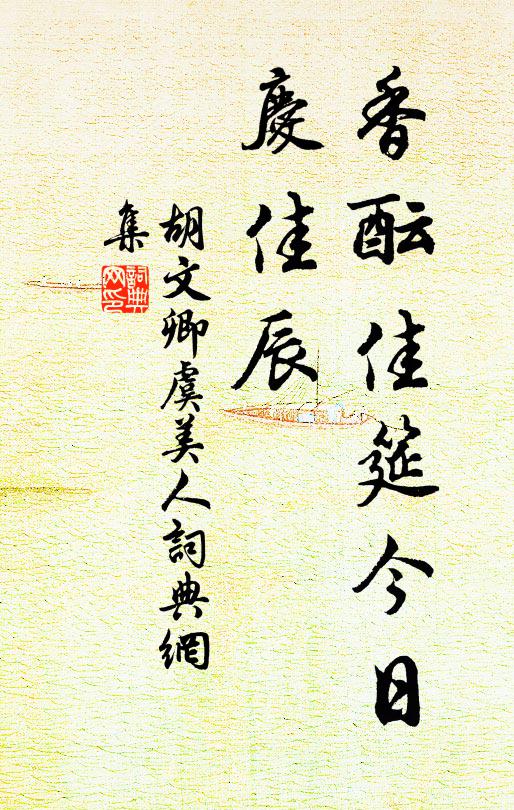 香酝佳筵今日
慶佳辰
胡文卿虞美人詞典網
集
詞典
网印